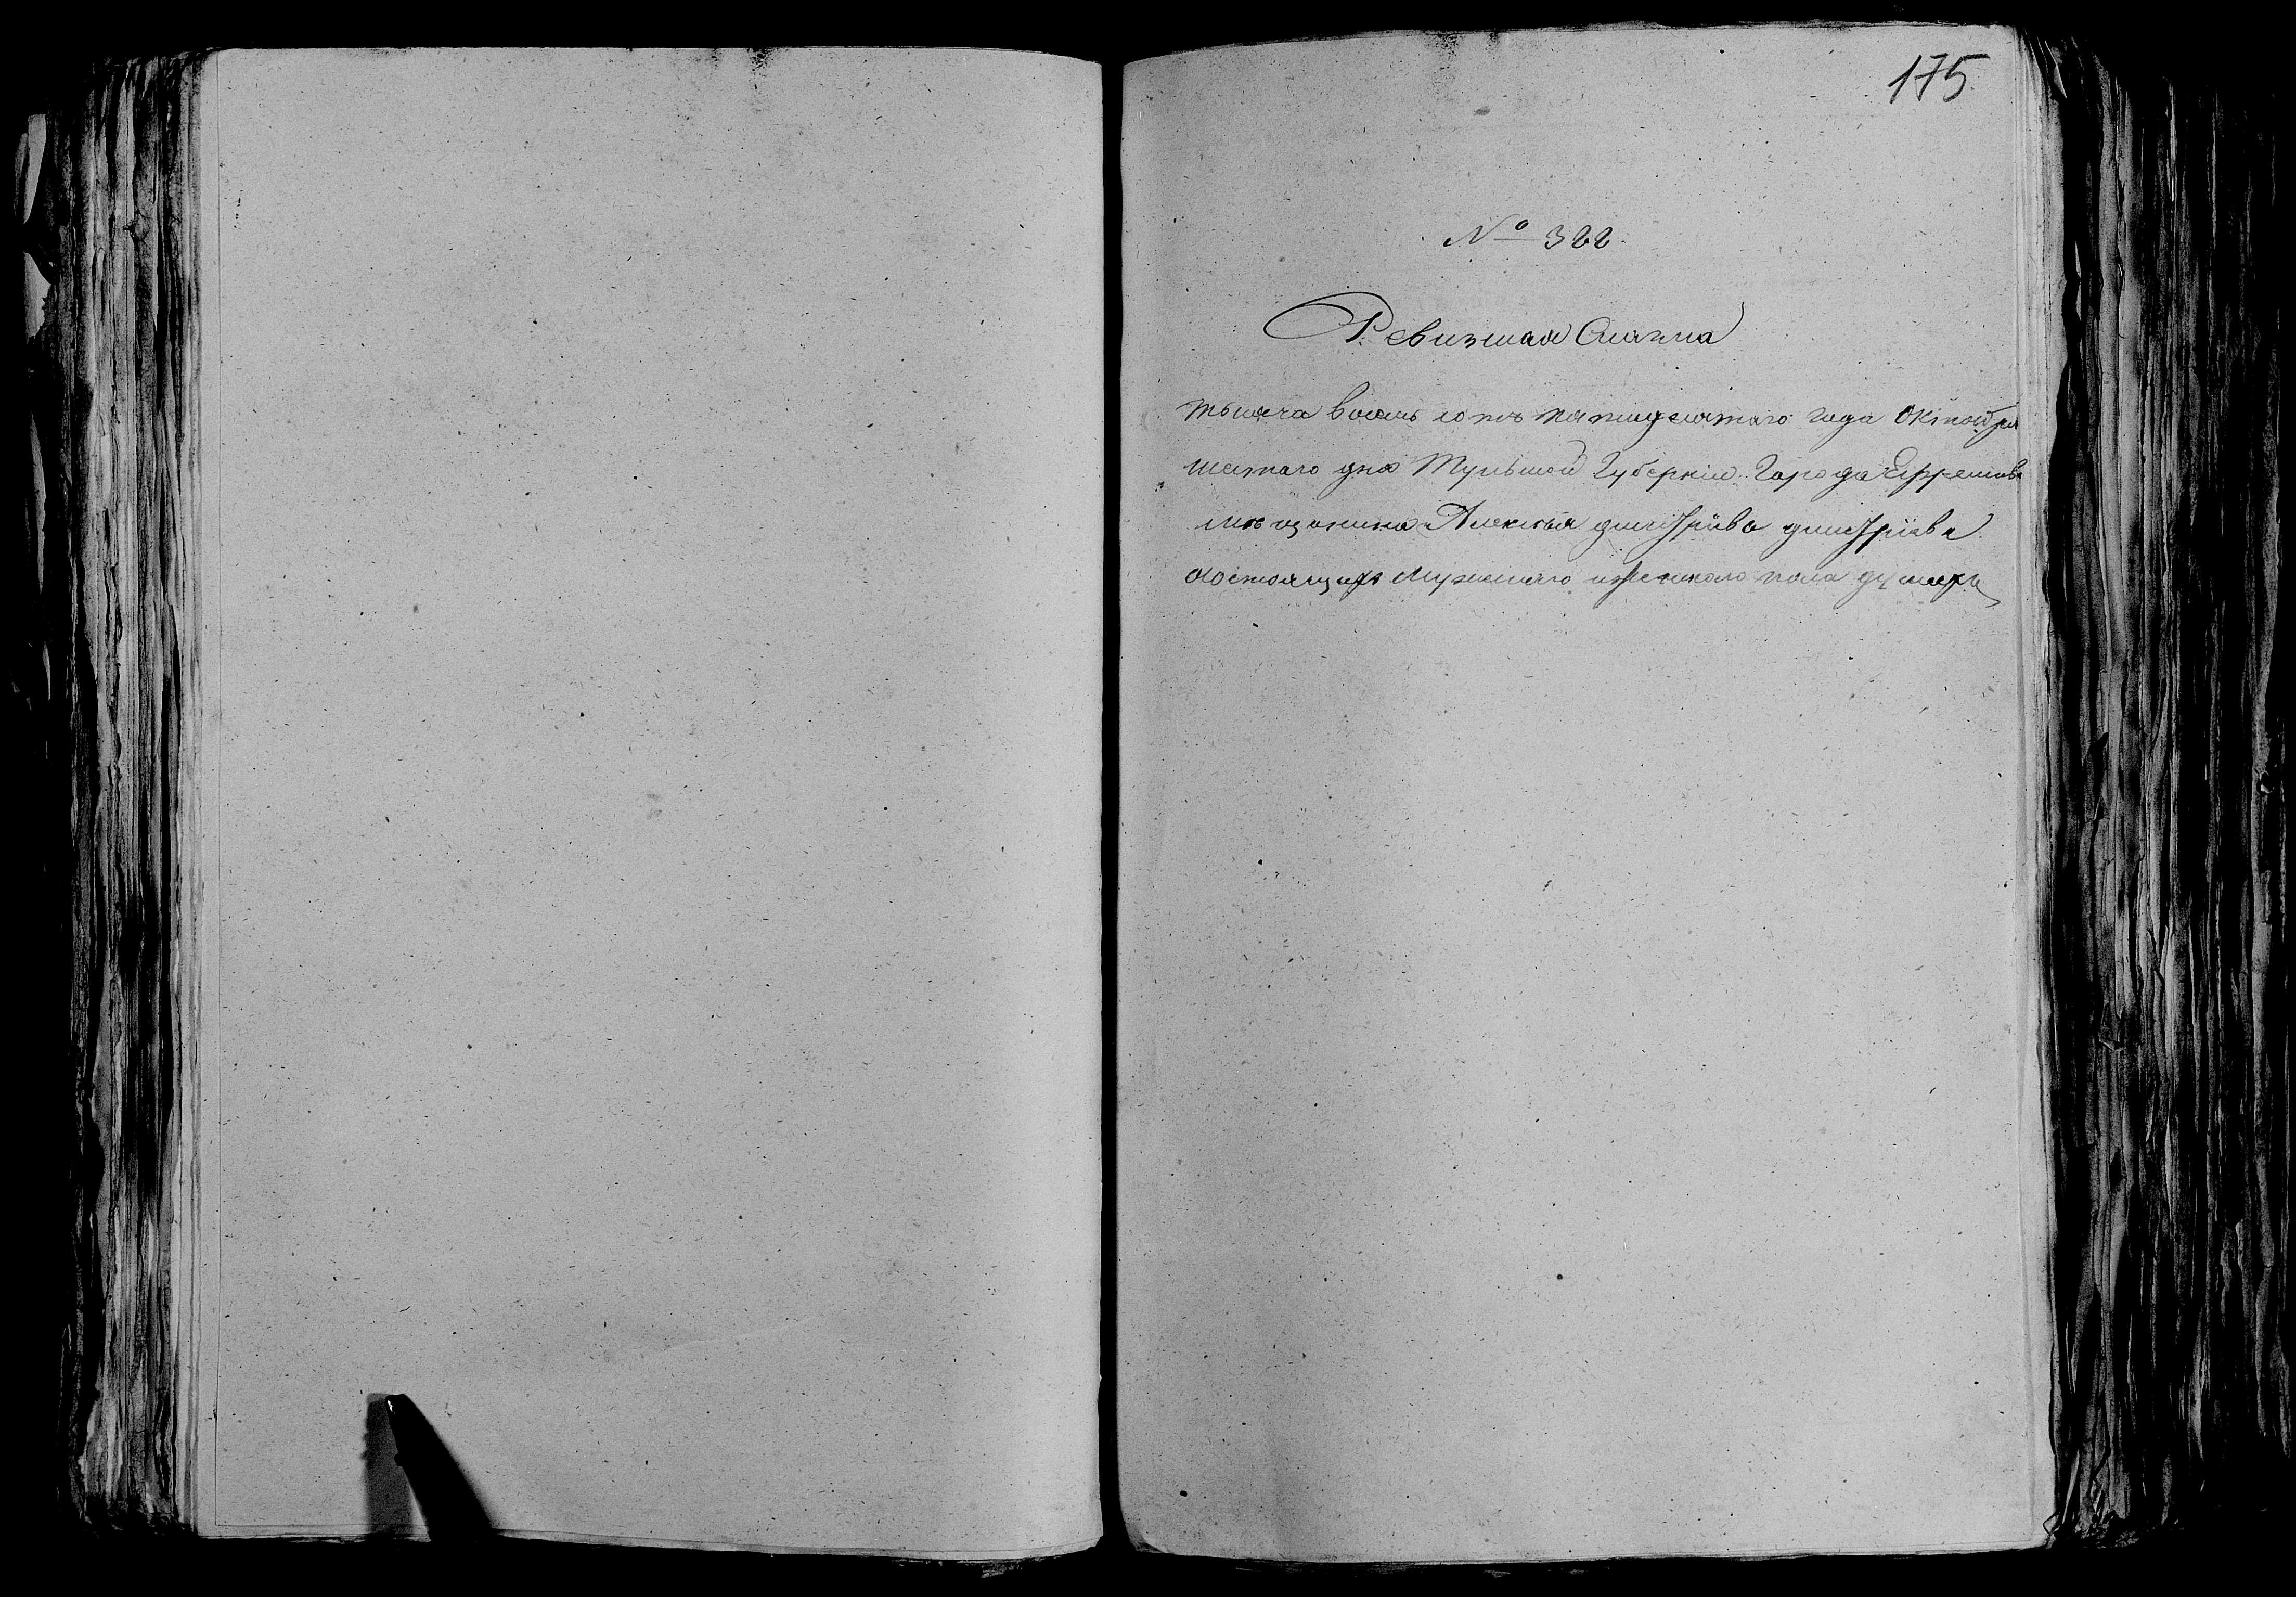 175
№ 322.
Ревизская Сказка
тысяча восемь сотъ пятидесятаго года Октября
шестаго дня Тульской Губерніи Города Ефремова
мѣщанина Алексѣя дмитріева дмитріева
состоящихъ Мужскаго и женскаго пола душахъ